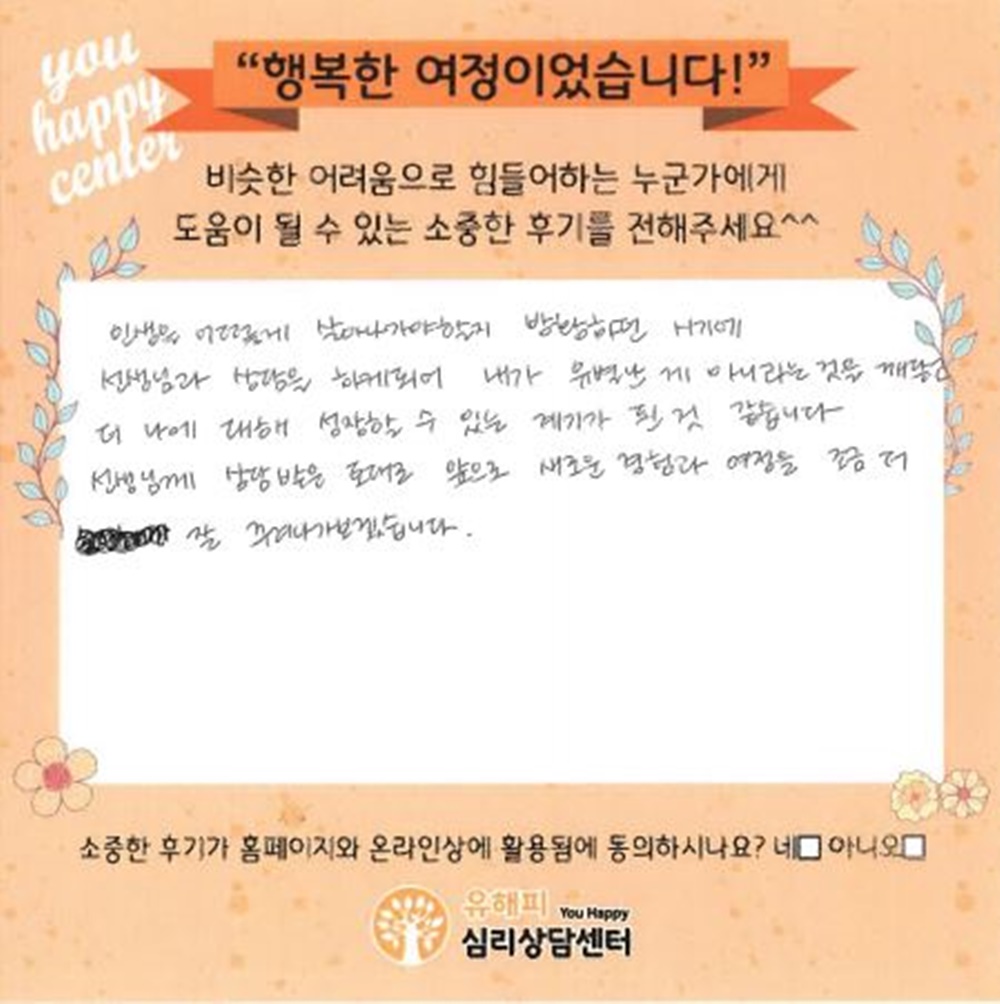 you
happy
center
“행복한 여정이었습니다!”
비슷한 어려움으로 힘들어하는 누군가에게
도움이 될 수 있는 소중한 후기를 전해주세요^^
인생을 어떻게 살아나가야할지 방황하던 시기에
선생님과 상담을 하게되어 내가 유별난 게 아니라는 것을 깨닫고
더 나에 대해 성장할 수 있는 계기가 된 것 같습니다
선생님께 상담 받은 토대로 앞으로 새로운 경험과 여정을 조금 더
잘 꾸려나가보겠습니다.
소중한 후기가 홈페이지와 온라인상에 활용됨에 동의하시나요? 네□ 아니오□
유해피 You Happy
심리상담센터